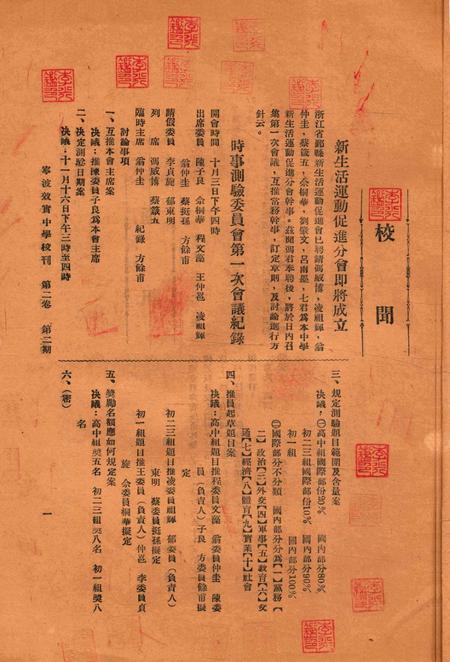 校聞
新生活運動促進分會即將成立
浙江省鄞縣新生活運動促進會已聘請馮威博，凌祖輝，翁
仲圭，蔡篯五，佘桐華，劉袌文，呂雨蓀，七君為本中學
新生活運動促進分會幹事。茲聞馮君奉聘後，將於日內召
集第一次會議，互推常務幹事，訂定章則，及討論進行方
針云。
時事測驗委員會第一次會議紀錄
開會時間　十月三日下午四時
出席委員　陳子良　佘桐華　程文藻　王仲邕　凌祖輝
翁仲圭　蔡挺孫　方餘甫
請假委員　李貞旋　郁東明
列　席　馮威博　蔡篯五
臨時主席　翁仲圭　紀錄　方餘甫
討論事項
一、互推本會主席案
決議：推陳委員子良為本會主席
二、決定測訟日期案
決議：十一月十六日下午三時至四時
三、規定測驗題目範圍及含量案
決議，㊀高中組國際部份20%　國內部分80%
初二三組國際部份10%　國內部分90%
初一組　國內部分100%
㊁國際部分不分類　國內部分分為【一】黨務【
二】政治【三】外交【四】軍事【五】教育【六】交
通【七】經濟【八】體育【九】實業【十】社會
四、推員起草題目案
決議：高中組題目推程委員文藻　翁委員仲圭　陳委
員（負責人）子良　方委員餘甫擬
定
初二三組題目推凌委員祖輝　郁委員（負責人）
東明　蔡委員挺孫擬定
初一組題目推王委員（負責人）仲邕　李委員貞
旋　佘委員桐華擬定
五、獎勵名額應如何規定案
決議：高中組獎五名　初二三組獎八名　初一組獎八
名
六、（密）
寧波效實中學校刊　第二卷　第二期
一